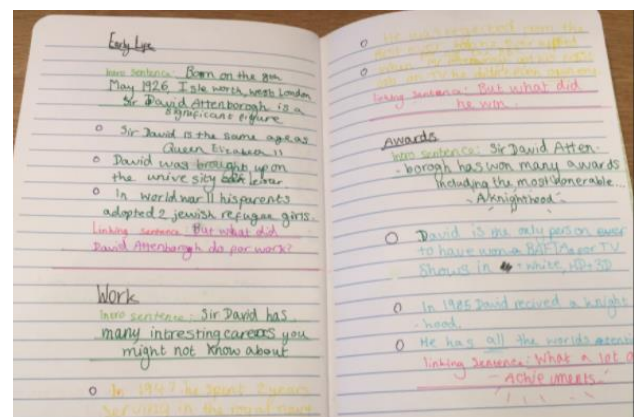 Early Life
Intro sentence: Born on the 8th
May 1926, Isle worth, west London
Sir David Attenborogh is a
significant figure
Sir David is the same age as
Queen Elizabeth II
David was brought up on
the unive sity
In world war II his parents
adopted 2 jewish refugee girls.
Linking sentence: But what did
David Attenborogh do for work?
Work
Intro sentence: Sir David has
many intresting careers you
might not know about
In 1947 he spent 2 years
serving in the royal navy
He was
linking sentence: But what did
he win
Awards
Intro sentence: Sir David Atten-
borogh has won many awards
including the most Honerable...
- A knighthood -
David is the only person ever
to have won a BAFTA for TV
Shows in + white, HD + 3D
In 1985 David recived a knight
-hood.
He has all the worlds
linking Sentence: What a lot o
Achieuments.